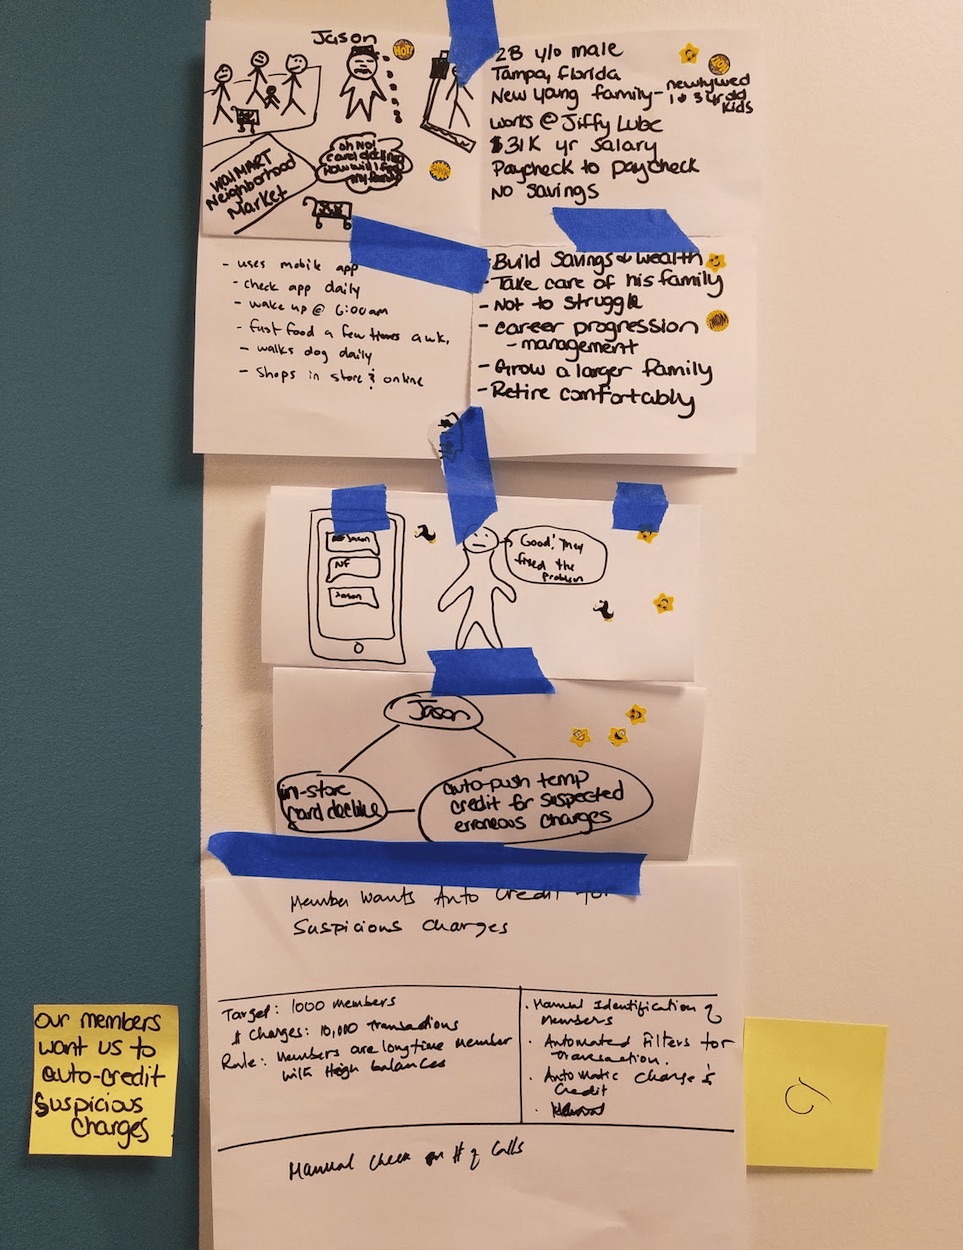 Jason
HOT!
WALMART
Neighborhood
Market
oh No!
card decline
How will I feed
my family
28 y/o male
Tampa, Florida
New young family - newlywed
1 & 3 yr old
kids
Works @ Jiffy Lube
$31K yr salary
Paycheck to paycheck
No savings
- uses mobile app
- check app daily
- wake up @ 6:00am
- fast food a few times a wk.
- walks dog daily
- Shops in store & online
- Build savings & wealth
- Take care of his family
- Not to struggle
- career progression
- management
- Grow a larger family
- Retire comfortably
WOW
Jason
NF
Jason
Good, They
fixed the
problem
Jason
in-store
card decline
auto-push temp
credit for suspected
erroneous charges
Member Wants Auto Credit for
Suspicious Charges
Target: 1000 members
# Charges: 10,000 transactions
Rule: Members are longtime member
with High balances
. Manual Identification of
Members
. Automated Filters for
transaction.
. Automatic charge &
Credit
Manual check on # of Calls
our members
want us to
auto-credit
Suspicious
charges